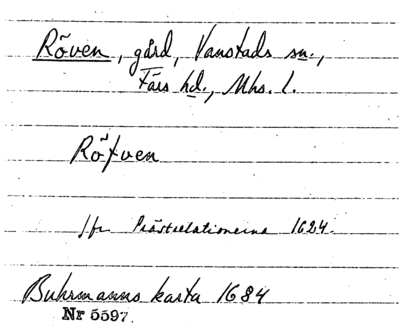 Röven, gård, Vanstads sn.,
Färs hd., Mhs. l.
Röfven
jfr Prästrelationerna 1624.
Buhrmanns karta 1684
Nr 5597.